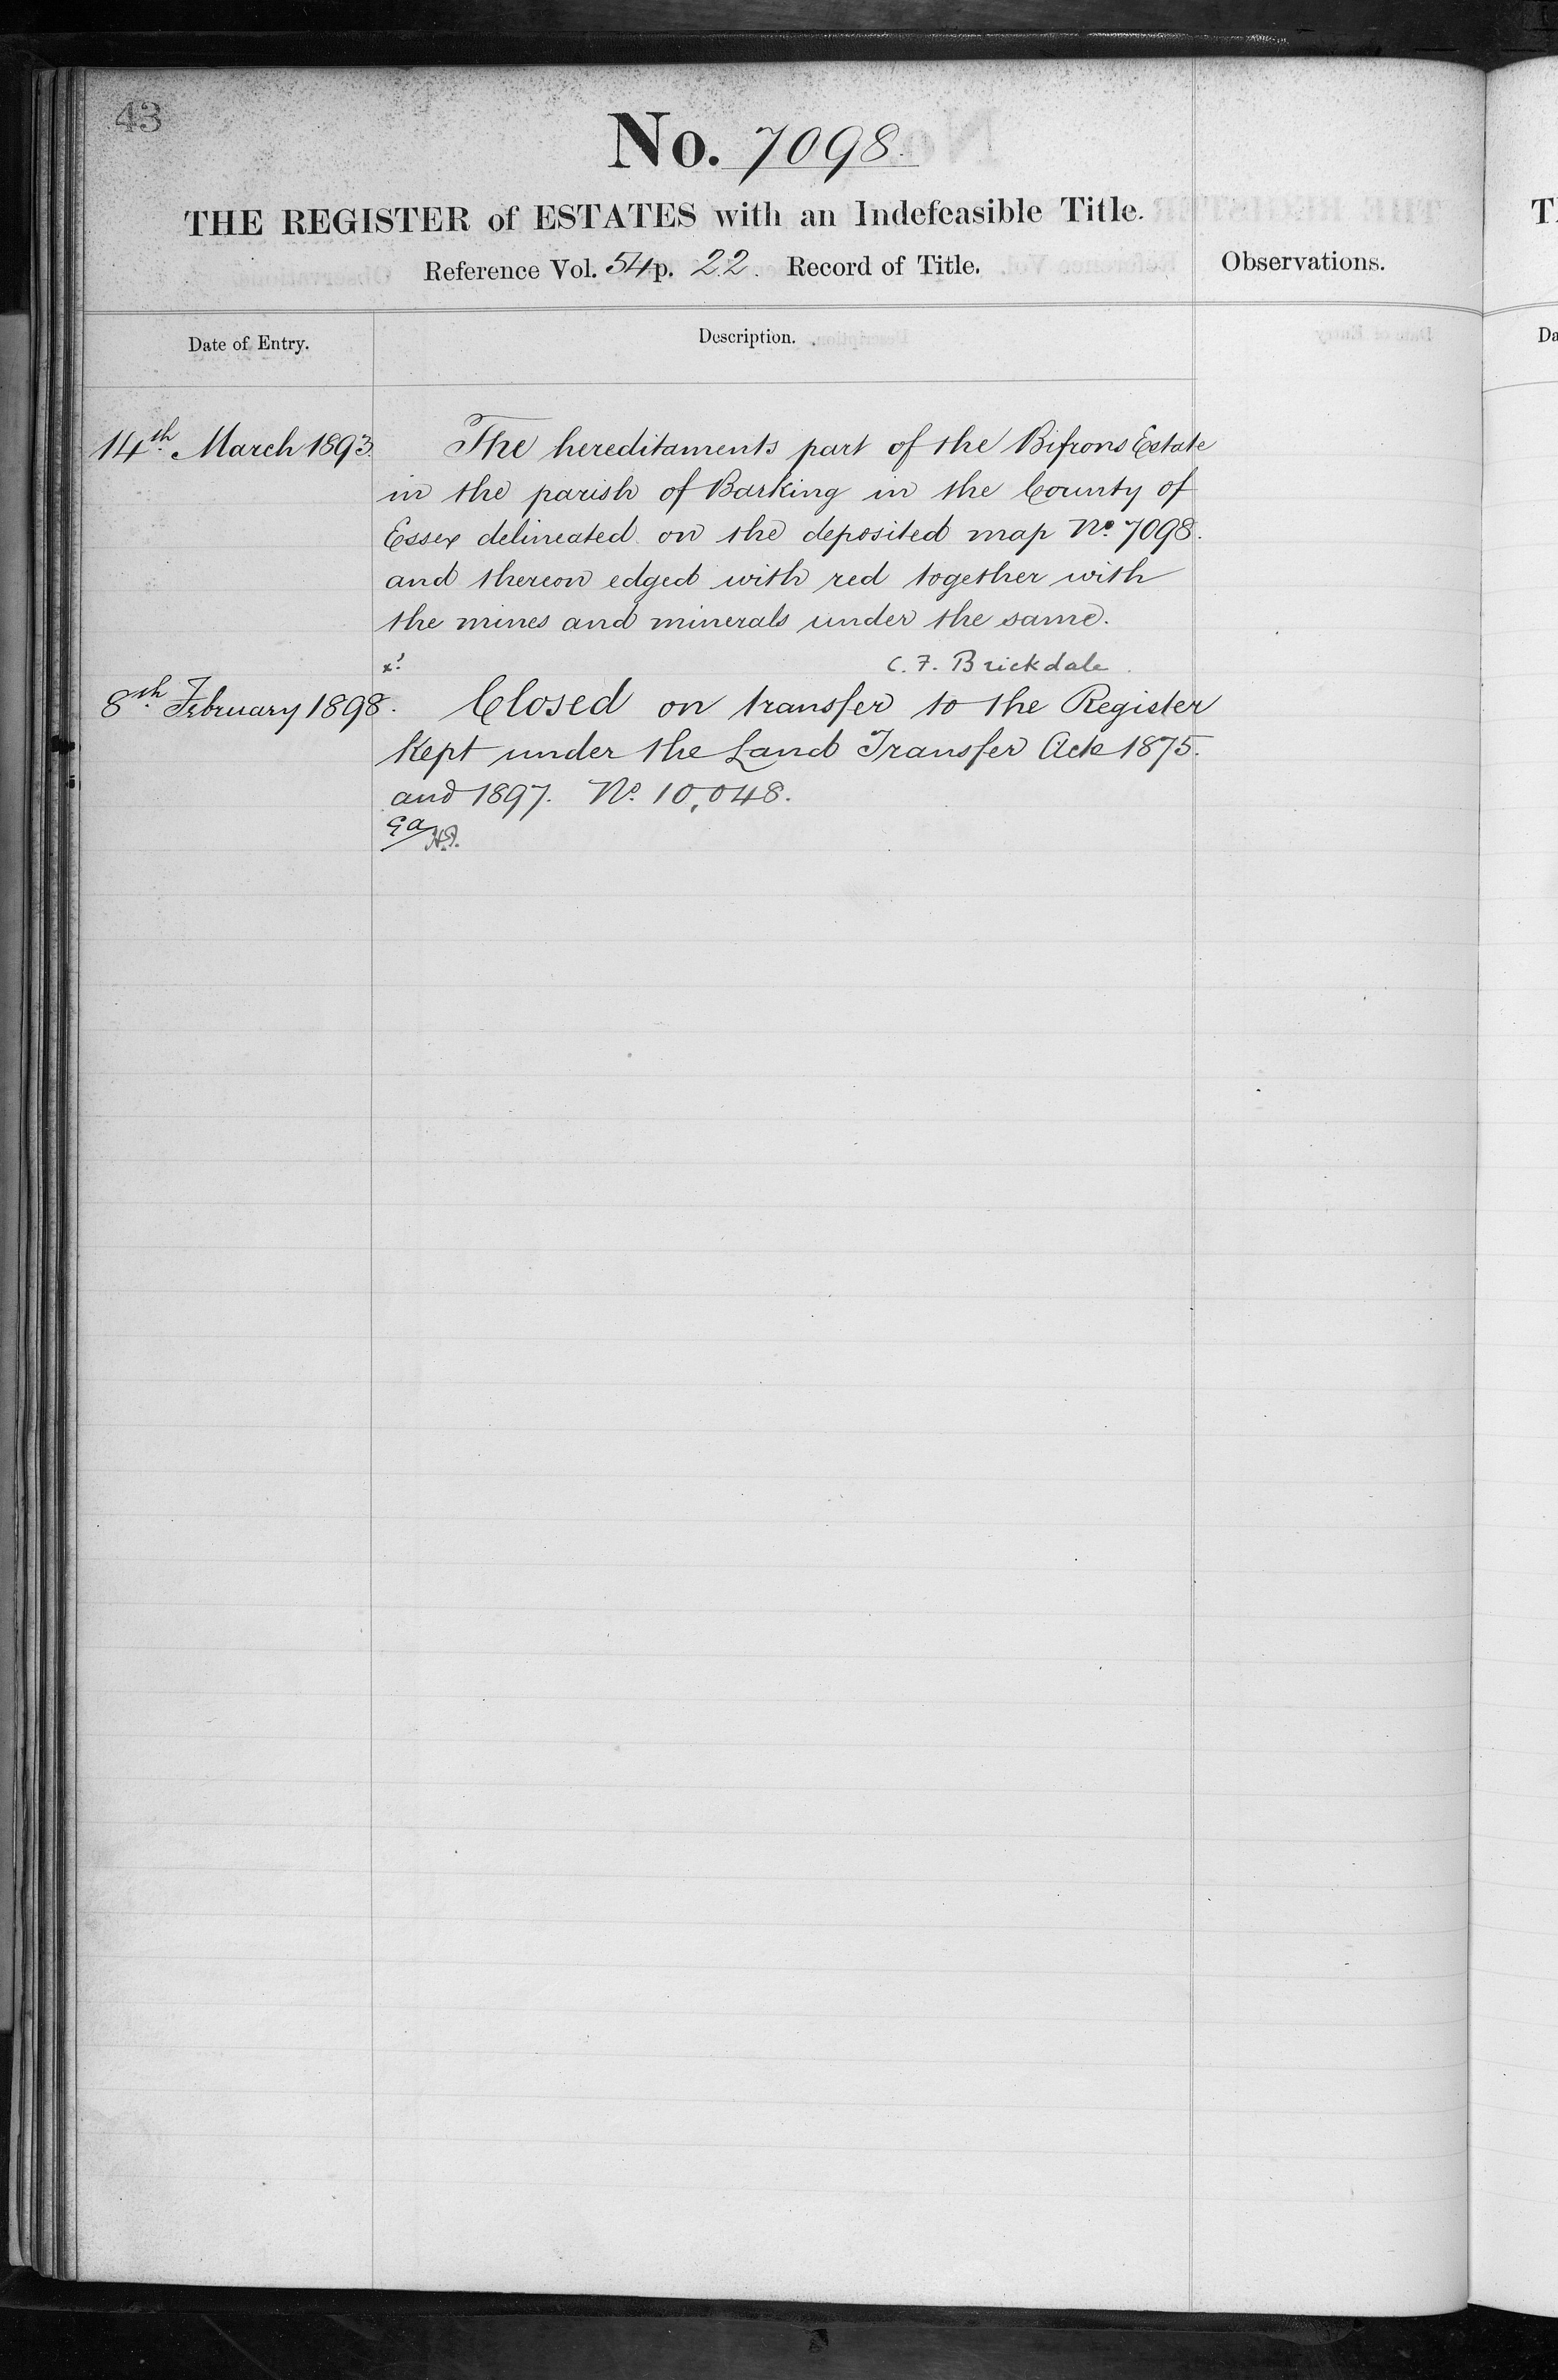 43
No. 7098.
THE REGISTER of ESTATES with an Indefeasible Title.
Reference Vol. 54 p. 22. Record of Title.
Observations.
Date of Entry.
Description.
14th March 1893.
The hereditaments part of the Bifrons Estate
in the parish of Barking in the County of
Essex delineated on the deposited map No. 7098.
and thereon edged with red together with
the mines and minerals under the same.
C. F. Brickdale.
8th February 1898.
Closed on transfer to the Register
kept under the Land Transfer Acts 1875.
and 1897. No. 10,048.